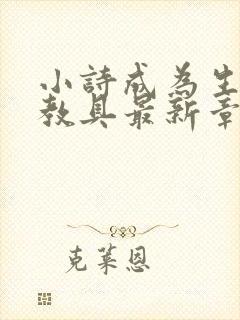 小詩成為生
教具最新章
克萊恩